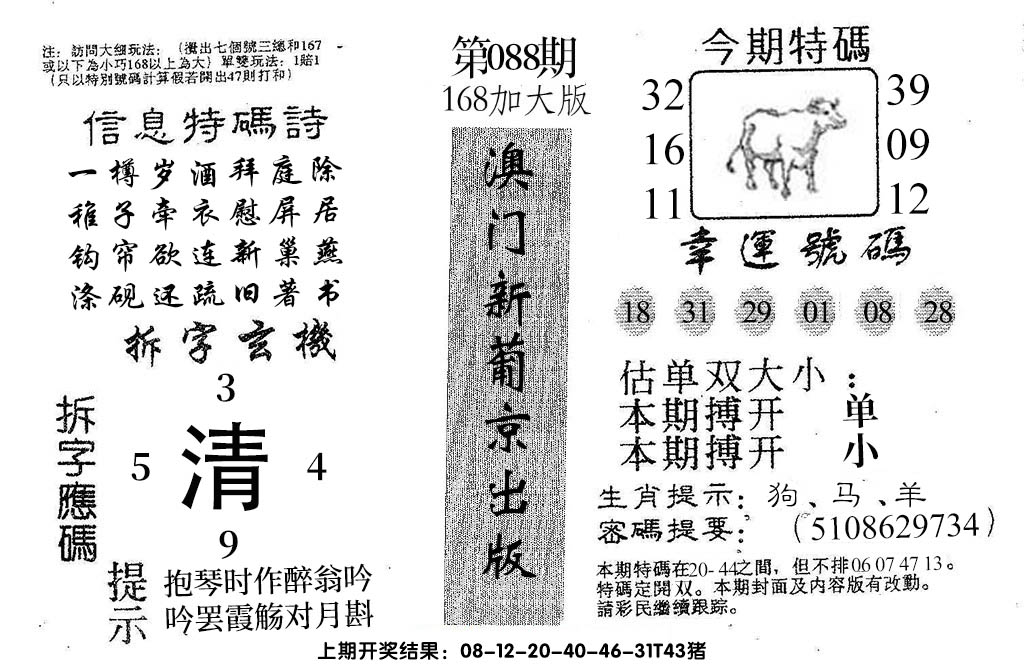 注：訪問大细玩法：（攪出七個號三總和167
或以下為小巧168以上為大）單雙玩法：1賠1
（只以特別號碼計算假若開出47則打和）
信息特碼詩
一樽岁酒拜庭除
稚子牵衣慰屏居
钩帘欲连新巢燕
涤砚还疏旧著书
拆字玄機
3
拆字應碼
5
清
4
9
提示
抱琴时作醉翁吟
吟罢霞觞对月斟
第088期
168加大版
澳门新葡京出版
今期特碼
32
39
16
09
11
12
幸運號碼
18 31 29 01 08 28
估单双大小：
本期搏开 单
本期搏开 小
生肖提示：狗、马、羊
密碼提要：（5108629734）
本期特碼在20-44之間，但不排06 07 47 13。
特碼定開双。本期封面及内容版有改動。
請彩民繼續跟踪。
上期开奖结果：08-12-20-40-46-31T43猪